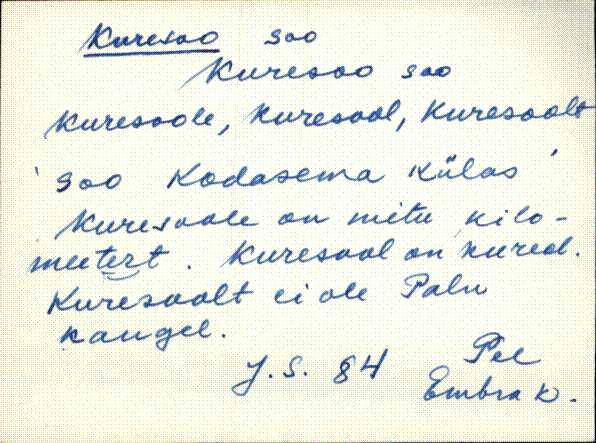 Kuresoo soo
Kuresoo soo
Kuresoole, Kuresool, Kuresoolt
' soo Kodasema külas '
Kuresoole on mitu kilo-
meetert. Kuresool on kured.
Kuresoolt ei ole Palu
kaugel.
J. S. 84 Pee
Embra k.